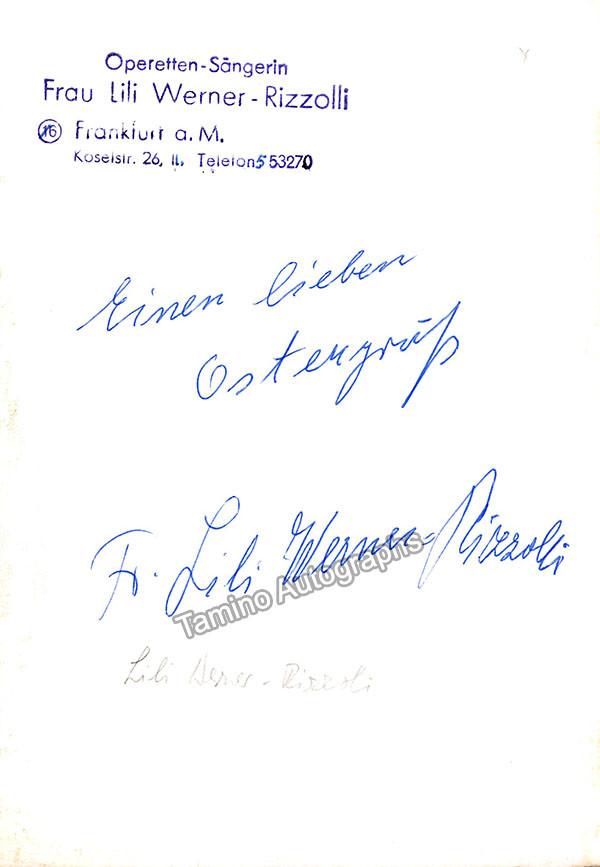 Operetten-Sängerin
Frau Lili Werner-Rizzolli
16 Frankfurt a. M.
Koselstr. 26, II. Telefon 553270
Einen lieben
Ostergruß
Fr. Lili Werner-Rizzolli
Tamino Autographs
Lili Werner-Rizzoli